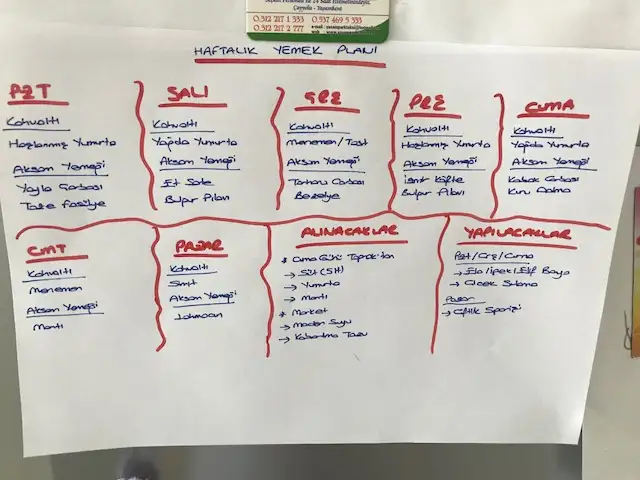 0.312 217 1 333 0.537 469 5 333
0.312 217 2 777
HAFTALIK YEMEK PLANI
PZT
Kahvaltı
Haşlanmış Yumurta
Akşam Yemeği
Yayla Çorbası
Taze Fasülye
SALI
Kahvaltı
Yağda Yumurta
Akşam Yemeği
Et Sote
Bulgur Pilavı
ÇRŞ
Kahvaltı
Menemen / Tost
Akşam Yemeği
Tarhana Çorbası
Bezelye
PRŞ
Kahvaltı
Haşlanmış Yumurta
Akşam Yemeği
İzmir Köfte
Bulgur Pilavı
CUMA
Kahvaltı
Yağda Yumurta
Akşam Yemeği
Kabak Çorbası
Kuru Dolma
CMT
Kahvaltı
Menemen
Akşam Yemeği
Mantı
PAZAR
Kahvaltı
Simit
Akşam Yemeği
Lahmacun
ALINACAKLAR
* Cuma Günü Topraktan
→ Süt (5 lt)
→ Yumurta
→ Mantı
* Market
→ Maden Suyu
→ Kabartma Tozu
YAPILACAKLAR
Pzt / Çrş / Cuma
→ Çiçek Sulama
Pazar
→ Çiftlik Siparişi